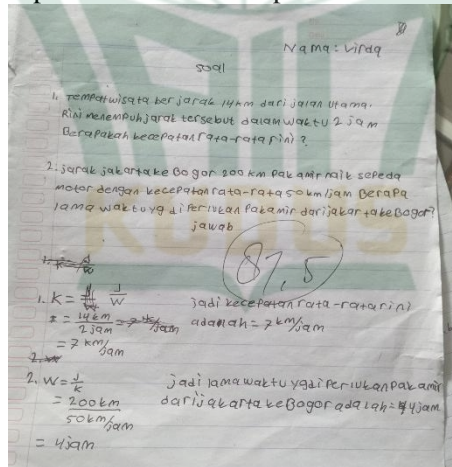 Nama: Virda
soal
1. Tempat wisata berjarak 14 km dari jalan utama.
Rini menempuh jarak tersebut dalam waktu 2 jam
Berapakah kecepatan rata-rata rini?
2. jarak jakarta ke Bogor 200 km pak amir naik sepeda
motor dengan kecepatan rata-rata 50 km/jam Berapa
lama waktu yg diperlukan Pak amir dari jakarta ke Bogor?
jawab
87,5
1. K = J/W
= 14 km / 2 jam
= 7 km/jam
jadi kecepatan rata-rata rini
adalah = 7 km/jam
2. W = J/K
= 200 km / 50 km/jam
= 4 jam
jadi lama waktu yg diperlukan pak amir
dari jakarta ke Bogor adalah = 4 jam